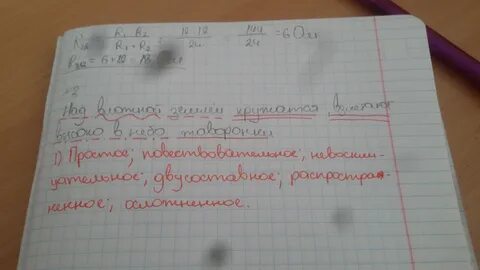 R₁ R₂ / R₁ + R₂ = 12 · 12 / 24 = 144 / 24 = 6 Ом
= 6 + 12 = 18
Над влажной землёй кружатся взлетают
высоко в небо жаворонки
1) Простое; повествовательное; невоскли-
цательное; двусоставное; распростра-
ненное; осложненное.